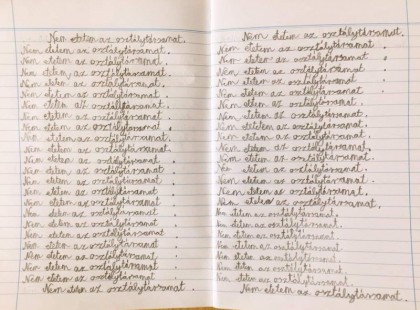 Nem etetem az osztálytársamat.
Nem etetem az osztálytársamat.
Nem etetem az osztálytársamat.
Nem etetem az osztálytársamat.
Nem etetem az osztálytársamat.
Nem etetem az osztálytársamat.
Nem etetem az osztálytársamat.
Nem etetem az osztálytársamat.
Nem etetem az osztálytársamat.
Nem etetem az osztálytársamat.
Nem etetem az osztálytársamat.
Nem etetem az osztálytársamat.
Nem etetem az osztálytársamat.
Nem etetem az osztálytársamat.
Nem etetem az osztálytársamat.
Nem etetem az osztálytársamat.
Nem etetem az osztálytársamat.
Nem etetem az osztálytársamat.
Nem etetem az osztálytársamat.
Nem etetem az osztálytársamat.
Nem etetem az osztálytársamat.
Nem etetem az osztálytársamat.
Nem etetem az osztálytársamat.
Nem etetem az osztálytársamat.
Nem etetem az osztálytársamat.
Nem etetem az osztálytársamat.
Nem etetem az osztálytársamat.
Nem etetem az osztálytársamat.
Nem etetem az osztálytársamat.
Nem etetem az osztálytársamat.
Nem etetem az osztálytársamat.
Nem etetem az osztálytársamat.
Nem etetem az osztálytársamat.
Nem etetem az osztálytársamat.
Nem etetem az osztálytársamat.
Nem etetem az osztálytársamat.
Nem etetem az osztálytársamat.
Nem etetem az osztálytársamat.
Nem etetem az osztálytársamat.
Nem etetem az osztálytársamat.
Nem etetem az osztálytársamat.
Nem etetem az osztálytársamat.
Nem etetem az osztálytársamat.
Nem etetem az osztálytársamat.
Nem etetem az osztálytársamat.
Nem etetem az osztálytársamat.
Nem etetem az osztálytársamat.
Nem etetem az osztálytársamat.